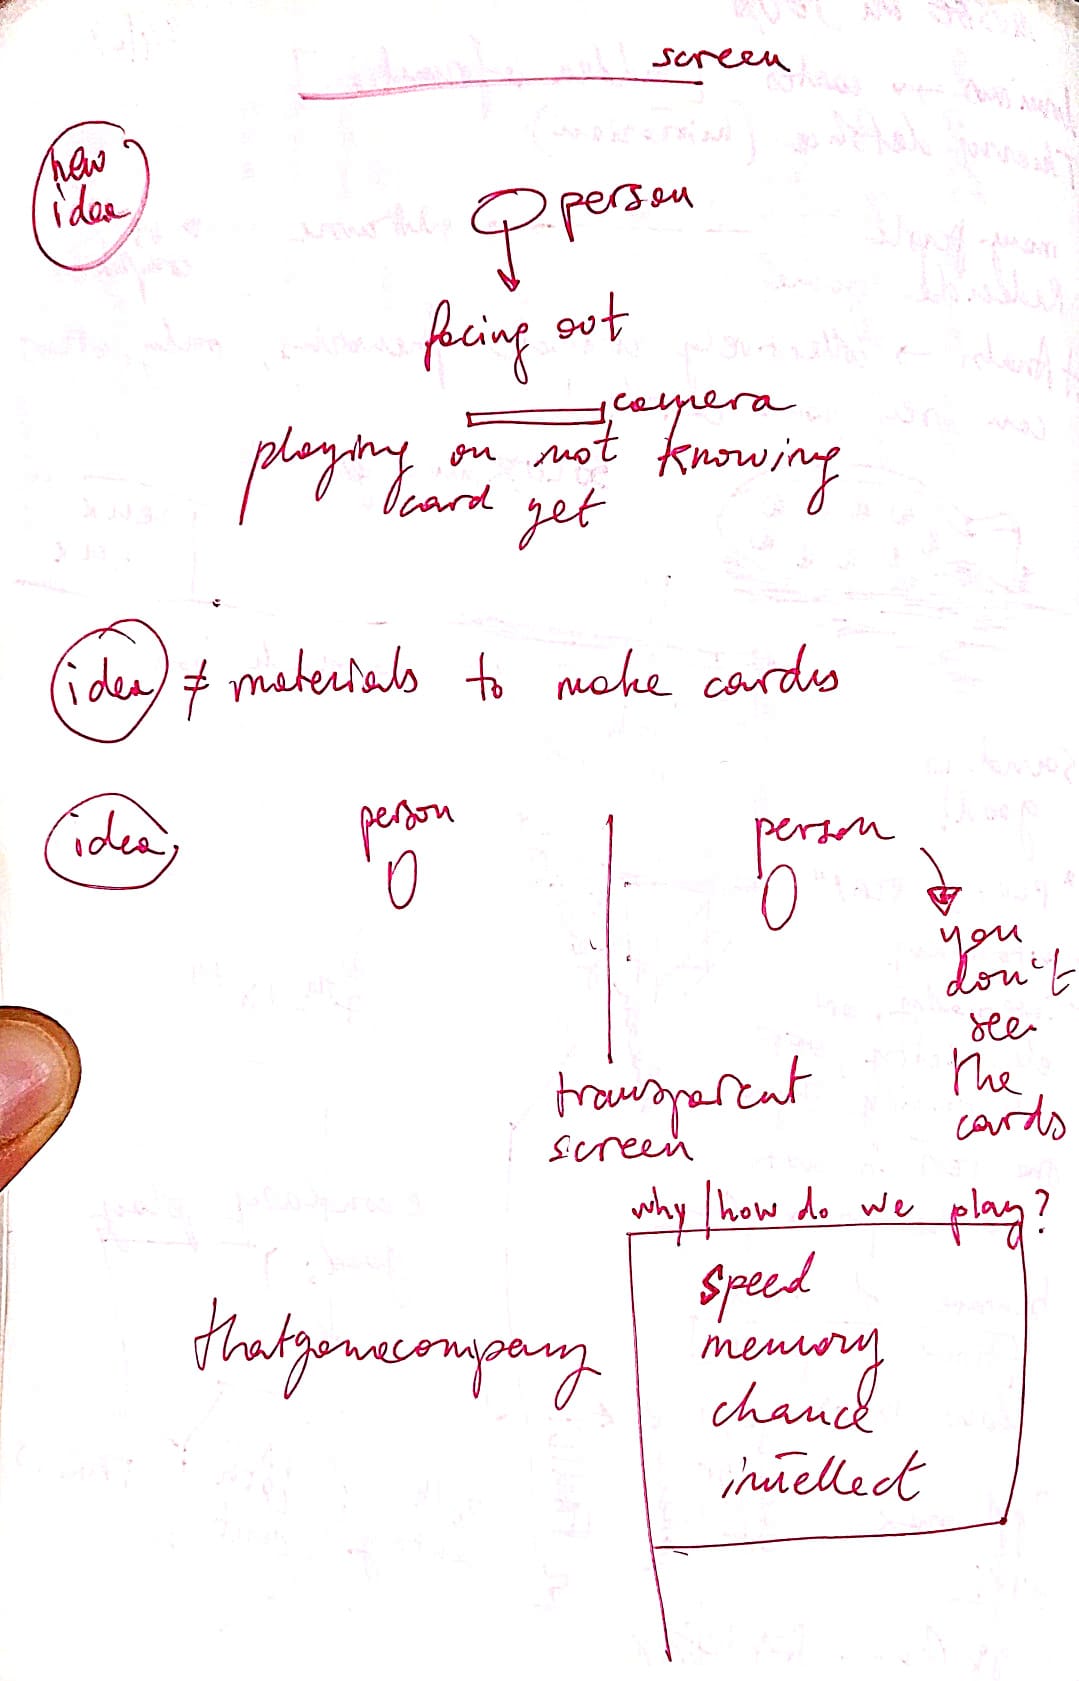 screen
new
idea
person
facing out
camera
playing on not knowing
card yet
idea ≠ materials to make cards
idea
person
person
you
don't
see
the
cards
transparent
screen
why/how do we play?
speed
memory
chance
intellect
thatgamecompany